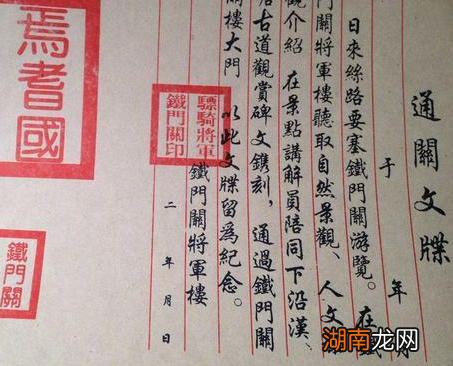 通關文牒
于 年 月
日來絲路要塞鐵門關游覽。在鐵
門關將軍樓聽取自然景觀、人文
觀介紹 在景點講解員陪同下沿漢、
古道觀賞碑文鐫刻，通過鐵門關
樓大門 以此文牒留爲紀念。
鐵門關將軍樓
二 年 月 日
驃騎將軍
鐵門關印
焉耆國
鐵門關
湖南龙网